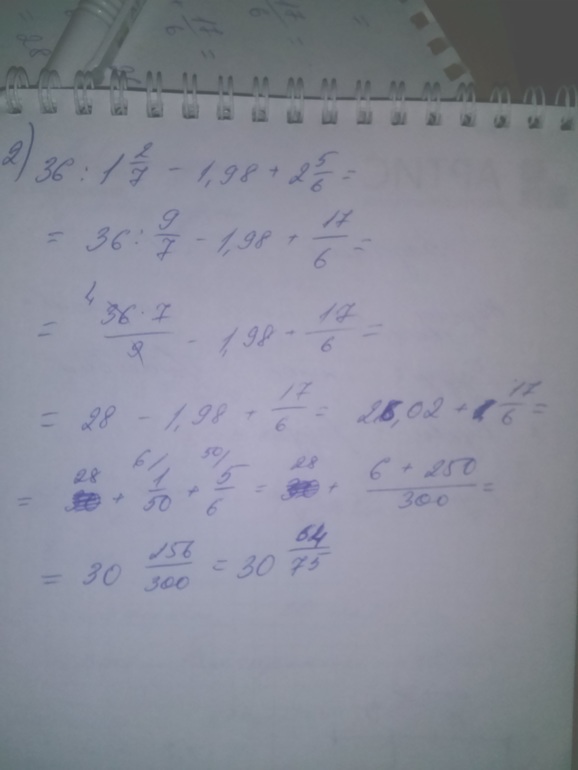 2) 36 : 1 2/7 - 1,98 + 2 5/6 =
= 36 : 9/7 - 1,98 + 17/6 =
= 4 36 · 7/9 - 1,98 + 17/6 =
= 28 - 1,98 + 17/6 = 26,02 + 17/6 =
= 28 + 6/ 1/50 + 50/ 5/6 = 28 + 6 + 250/300 =
= 30 256/300 = 30 64/75